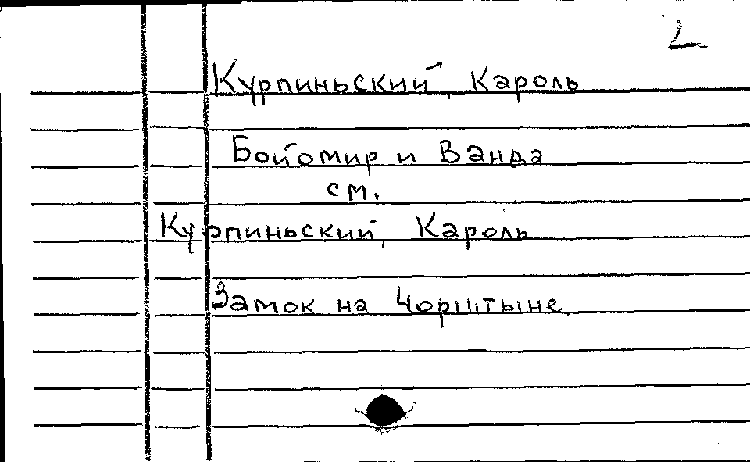 2
Курпиньский, Кароль
Бойомир и Ванда
см.
Курпиньский, Кароль
Замок на Чорштыне.